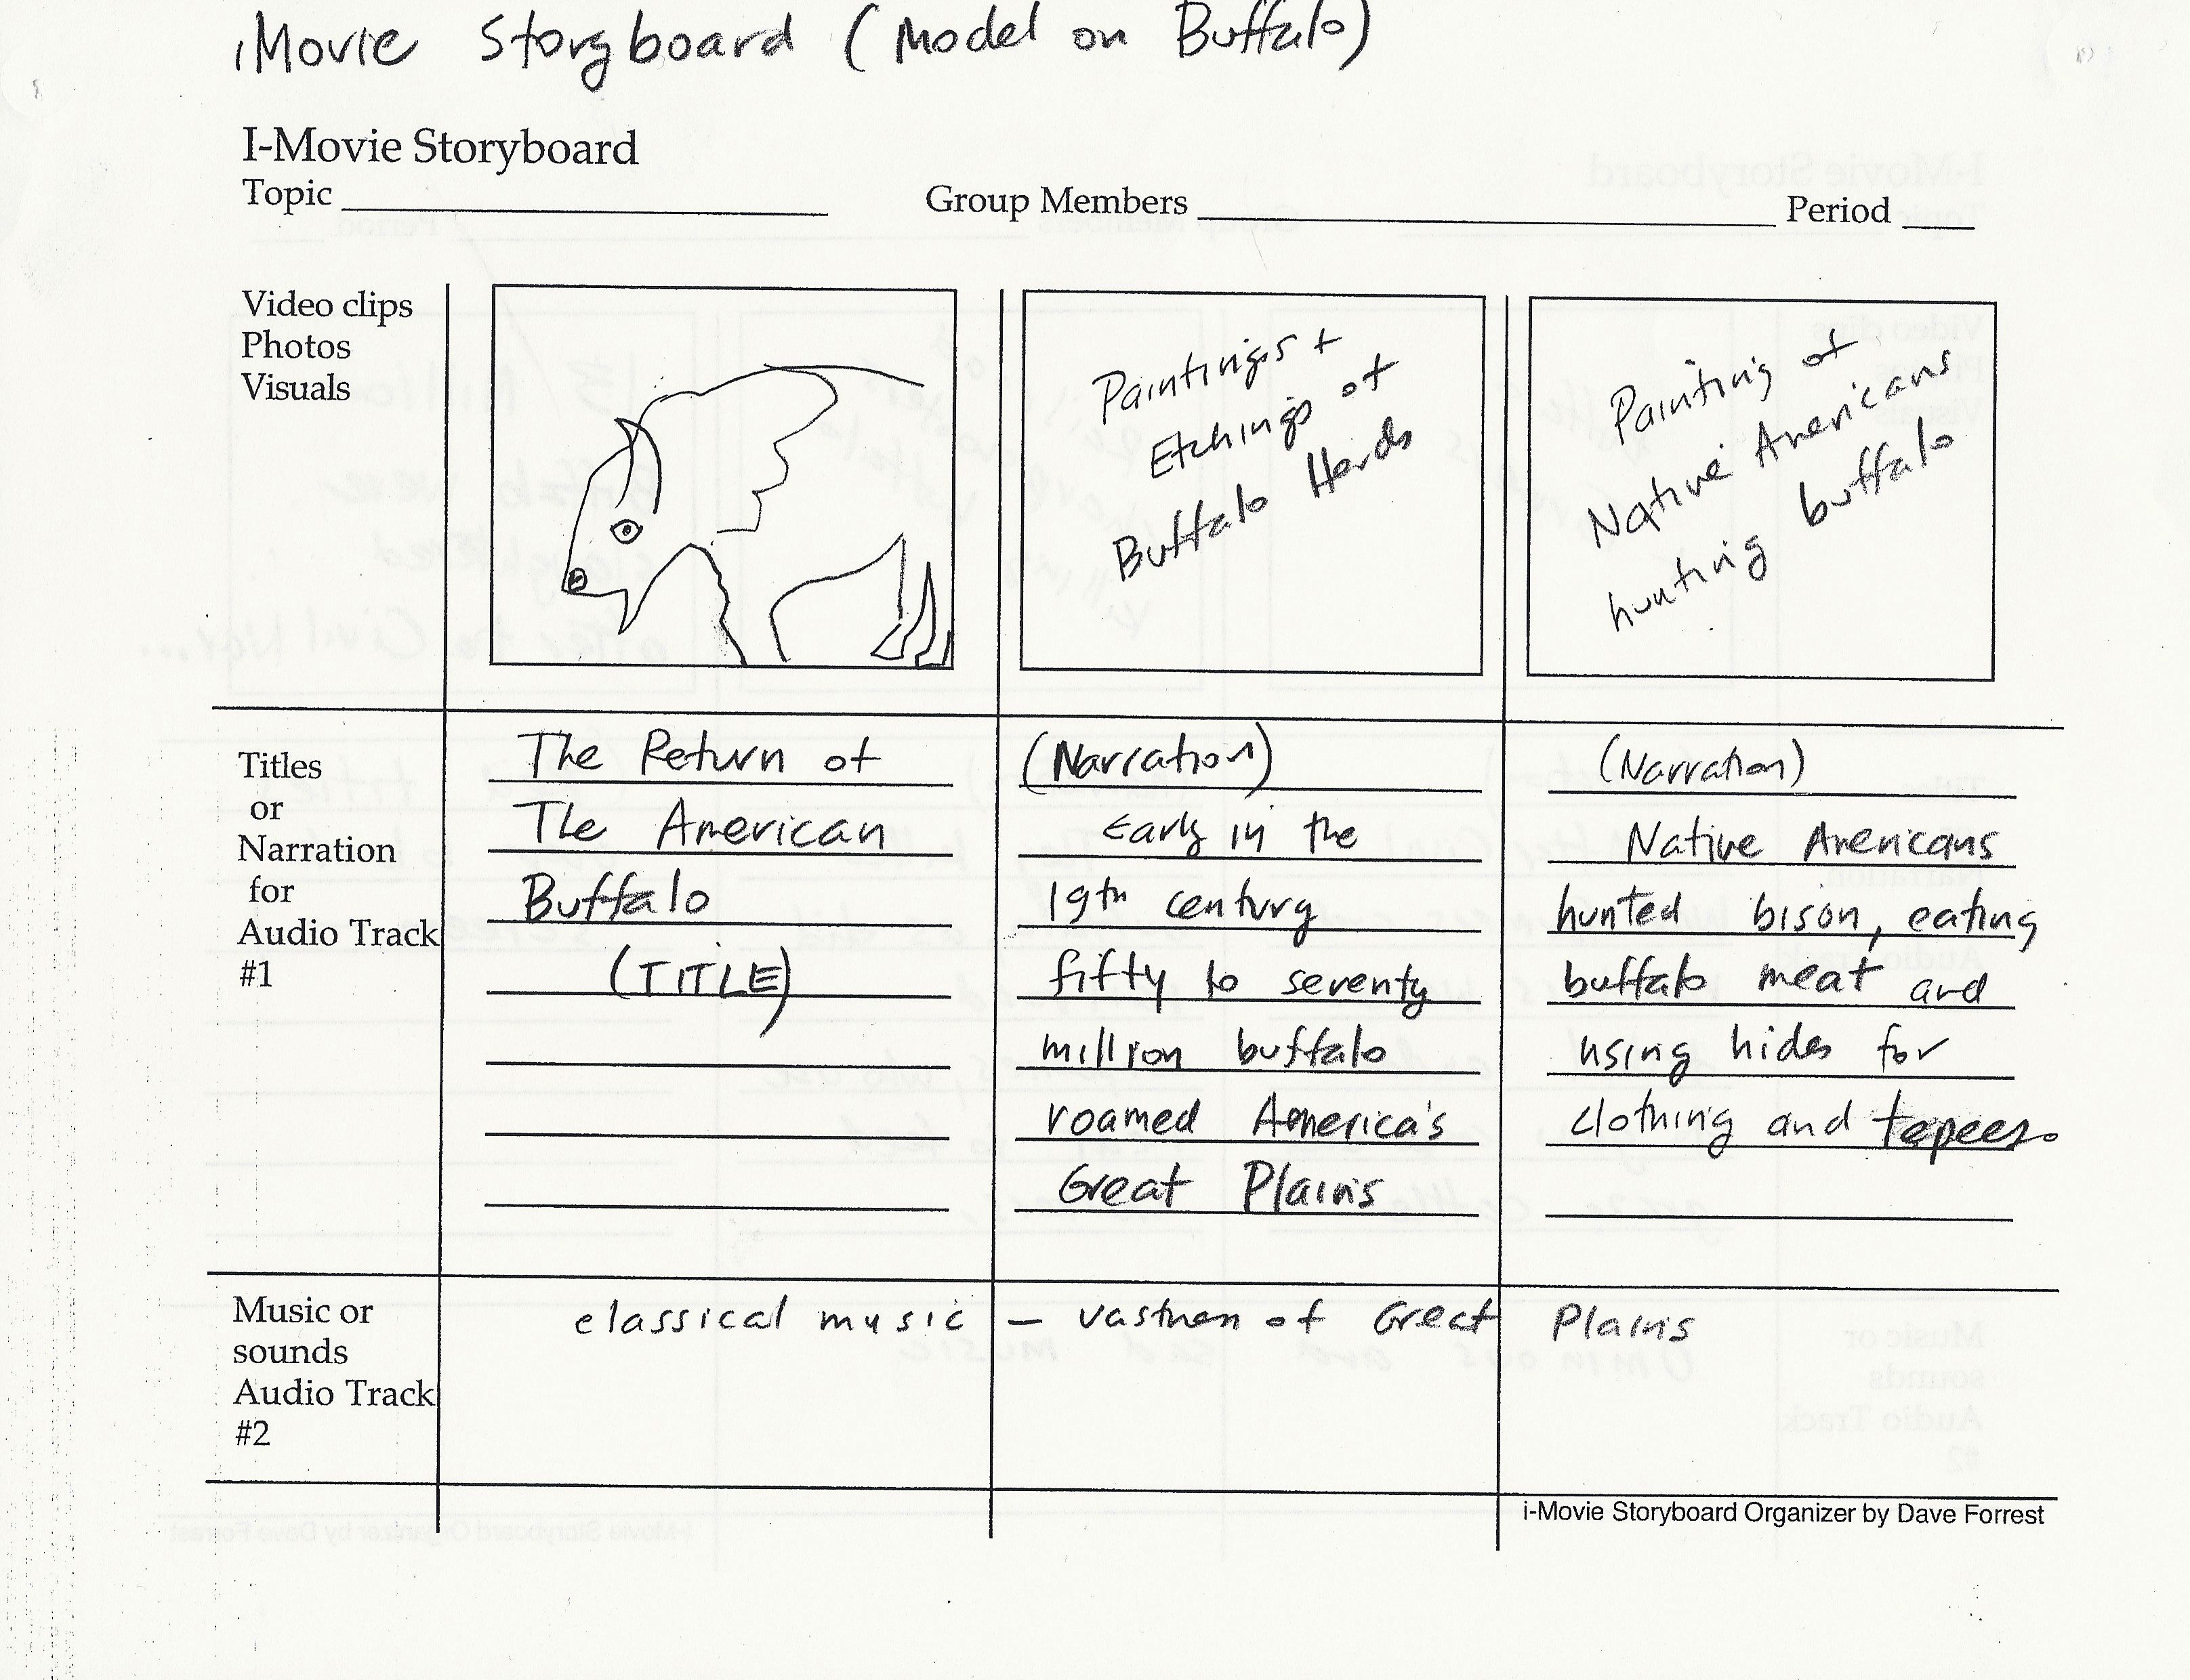 iMovie Storyboard (Model on Buffalo)
I-Movie Storyboard
Topic Group Members Period
Video clips
Photos
Visuals
Paintings +
Etchings of
Buffalo Herds
Painting of
Native Americans
hunting buffalo
Titles
or
Narration
for
Audio Track
#1
The Return of
The American
Buffalo
(TITLE)
(Narration)
Early in the
19th century
fifty to seventy
million buffalo
roamed America's
Great Plains
(Narration)
Native Americans
hunted bison, eating
buffalo meat and
using hides for
clothing and tepees.
Music or
sounds
Audio Track
#2
classical music – vastness of Great Plains
i-Movie Storyboard Organizer by Dave Forrest